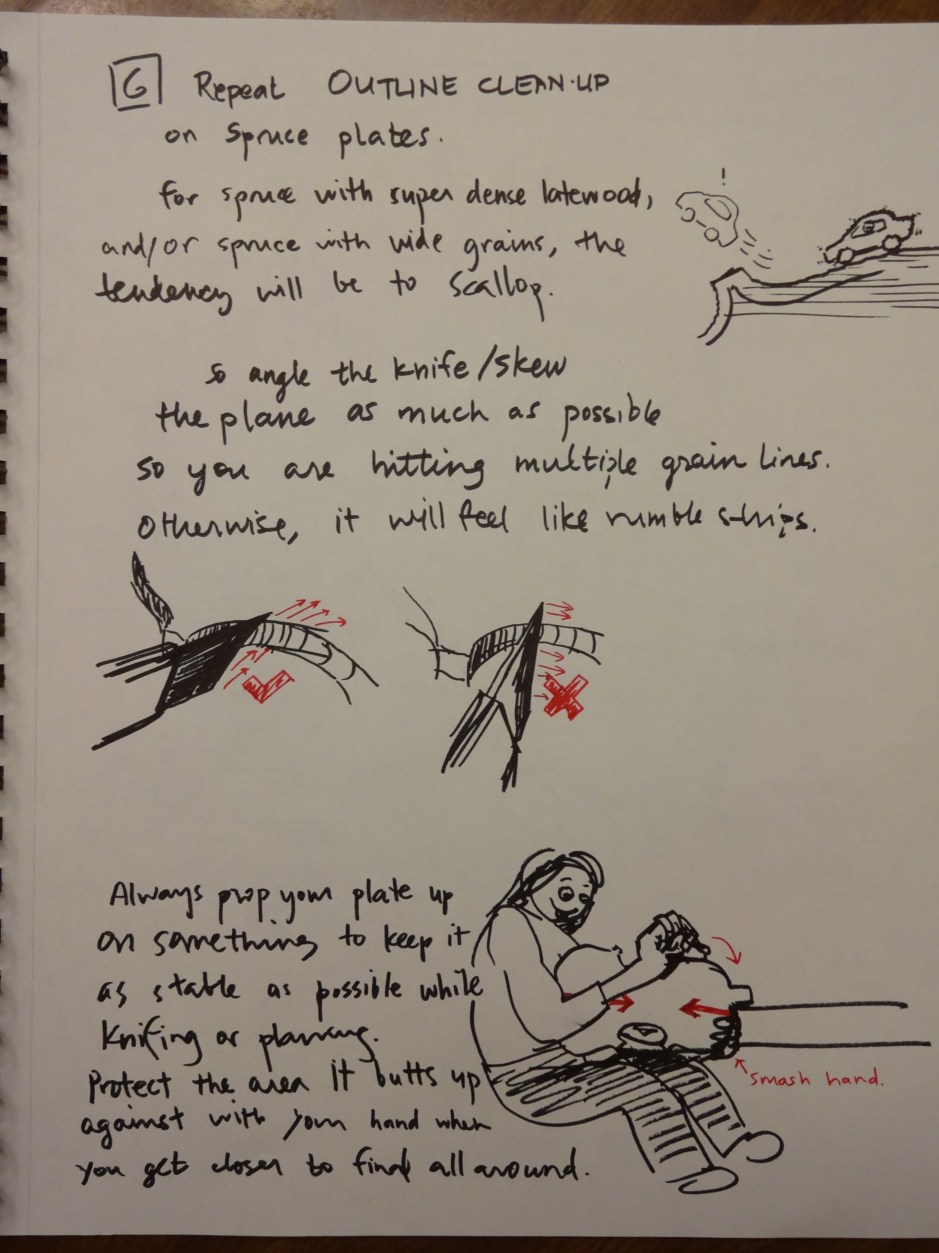 6 Repeat OUTLINE CLEAN-UP
on Spruce plates.
for spruce with super dense latewood,
and/or spruce with wide grains, the
tendency will be to scallop.
!
so angle the knife/skew
the plane as much as possible
so you are hitting multiple grain lines.
Otherwise, it will feel like rumble strips.
Always prop your plate up
on something to keep it
as stable as possible while
knifing or planing.
Protect the area it butts up
against with your hand when
you get closer to final all around.
smash hand.